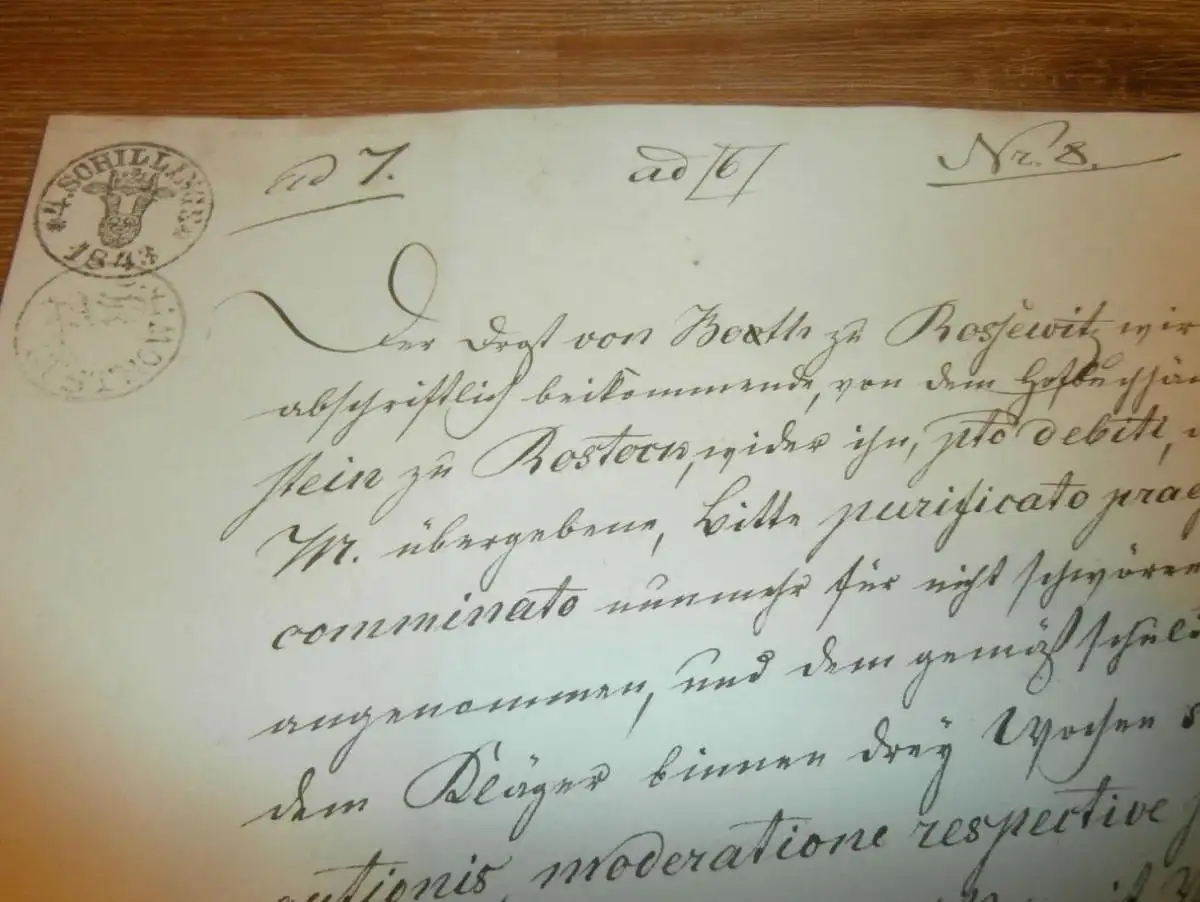 4. SCHILLINGE
1843
ad 7. ad /6/ Nr. 8.
Der Drost von Booth zu Rossewitz wir
abschriftlich beikommende, von dem Hofbuchhän
stein zu Rostock, wider ihn, pto debiti,
M. übergebene, Bitte purificato prae
comminato nunmehr für nicht schwören
angenommen, und dem gemäß schuld
dem Kläger binnen drey Wochen
cutionis, moderatione respective